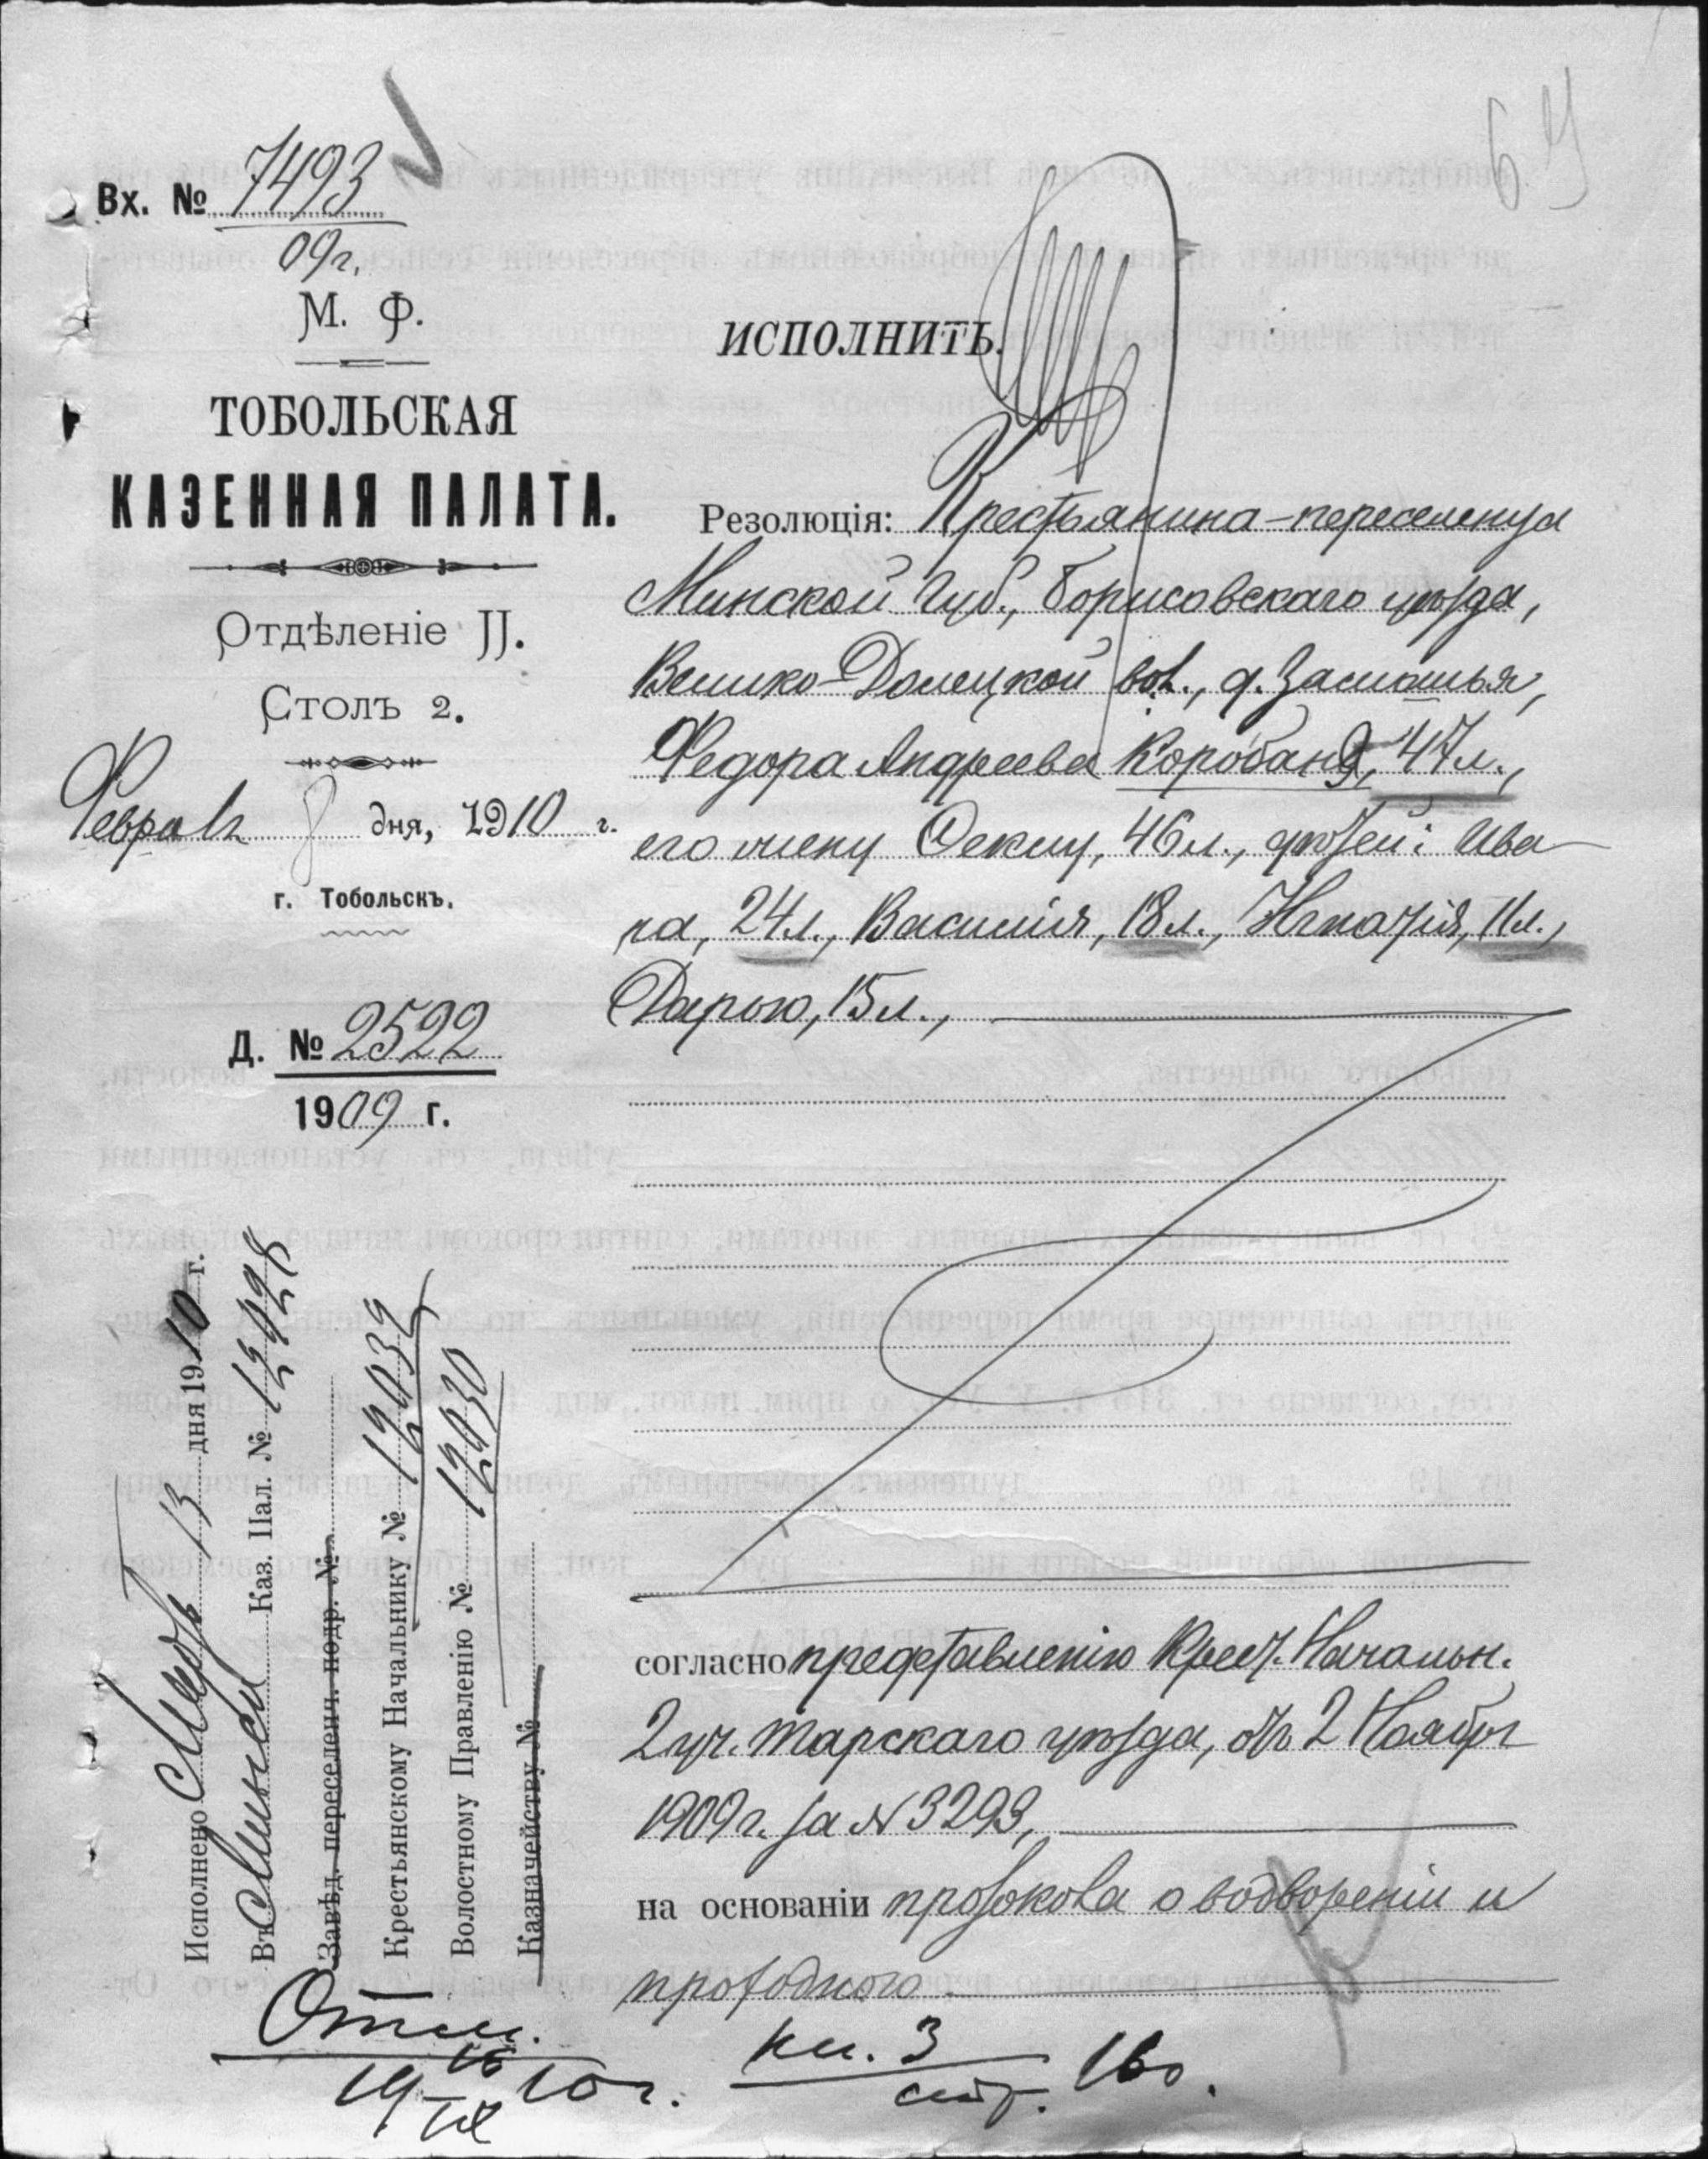 Вх. № 7493
09г.
М. Ф.
ТОБОЛЬСКАЯ
КАЗЕННАЯ ПАЛАТА.
Отдѣленіе II.
Столъ 2.
дня, 1910 г.
г. Тобольскъ.
Д. № 2522
1909 г.
Исполнено 13 дня 1910 г.
Въ Минскую Каз. Пал. № 12028
Завѣд. переселенч. подр. №
Крестьянскому Начальнику № 12032
Волостному Правленію № 12030
Казначейству №
64
ИСПОЛНИТЬ.
Резолюція: Крестьянина-переселенца
Минской Губ., Борисовскаго уѣзда,
Велико-Долецкой вол., д.
Федора Андреева 47 л.,
его жену 46 л., дѣтей: Ива
на, 24 л., Василія, 18 л., Игнатія, 11 л.,
Дарью, 15 л.,
согласно представленію Крест. Начальн.
2 уч. Тарскаго уѣзда, отъ 2 Ноября
1909 г. за № 3293,
на основаніи протокола о водвореніи и
проходного
Отм.
10 г.
кн. 3
стр. 160.